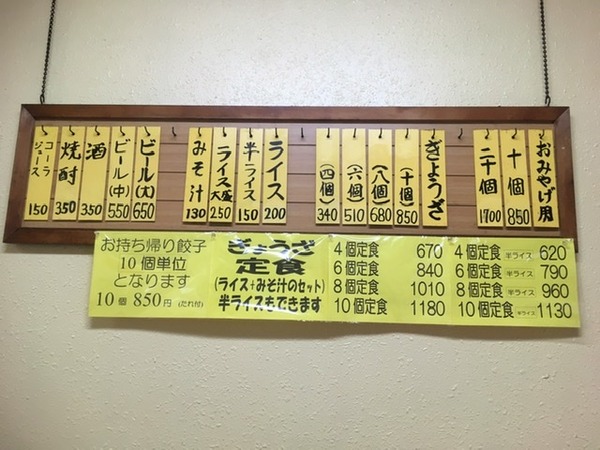 おみやげ用
十個 850
二十個 1700
ぎょうざ
(十個) 850
(八個) 680
(六個) 510
(四個) 340
ライス 200
半ライス 150
ライス大盛 250
みそ汁 130
ビール(大) 650
ビール(中) 550
酒 350
焼酎 350
コーラ
ジュース 150
お持ち帰り餃子
10個単位
となります
10個 850円 (たれ付)
ぎょうざ
定食
(ライス+みそ汁のセット)
半ライスもできます
4個定食 670
6個定食 840
8個定食 1010
10個定食 1180
4個定食 半ライス 620
6個定食 半ライス 790
8個定食 半ライス 960
10個定食 半ライス 1130